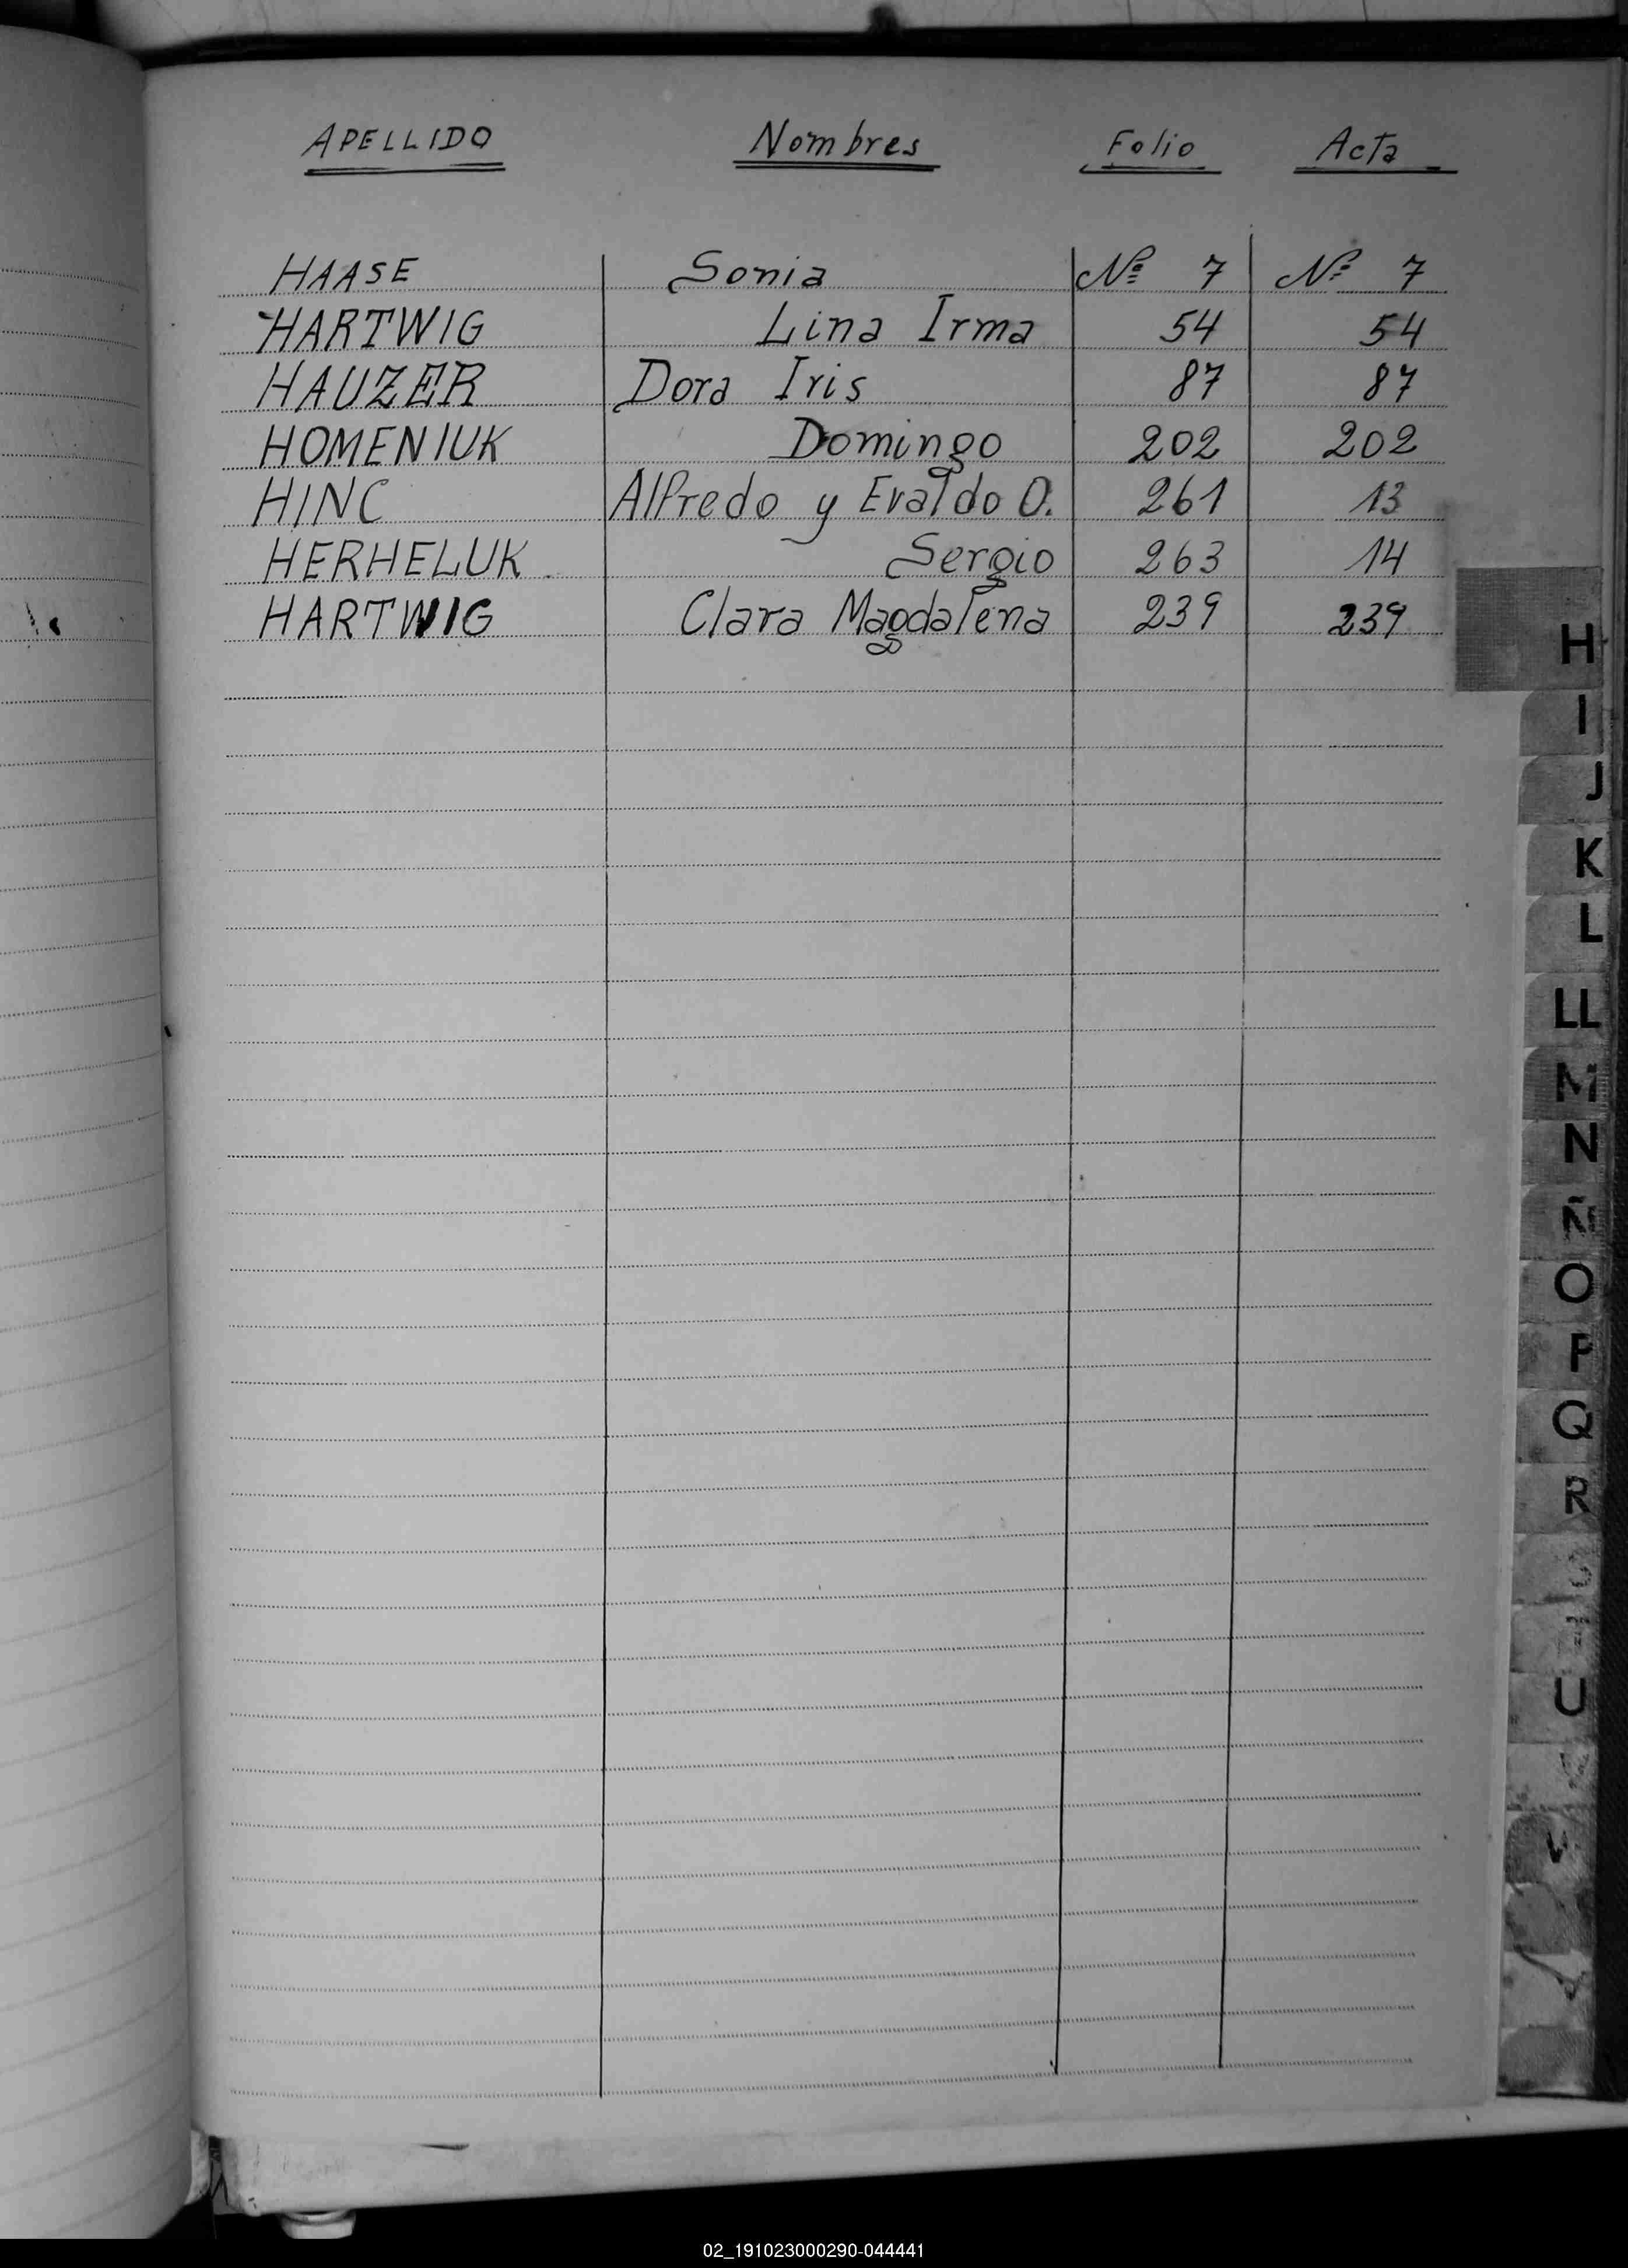 APELLIDO Nombres Folio Acta
HAASE Sonia Nº 7 Nº 7
HARTWIG Lina Irma 54 54
HAUZER Dora Iris 87 87
HOMENIUK Domingo 202 202
HINC Alfredo y Evaldo O. 261 13
HERHELUK Sergio 263 14
HARTWIG Clara Magdalena 239 239
H
I
J
K
L
LL
M
N
Ñ
O
P
Q
R
U
02_191023000290-044441